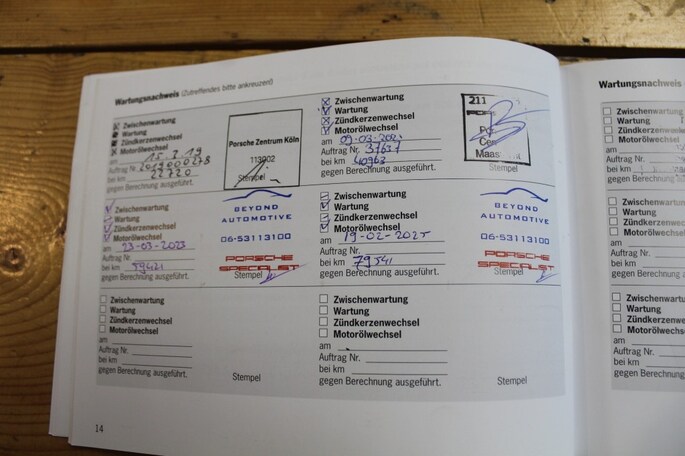 Wartungsnachweis (Zutreffendes bitte ankreuzen)
Zwischenwartung
Wartung
Zündkerzenwechsel
Motorölwechsel
am 15.7.19
Auftrag Nr. 2019000278
bei km 22720
gegen Berechnung ausgeführt.
Porsche Zentrum Köln
113902
Stempel
Zwischenwartung
Wartung
Zündkerzenwechsel
Motorölwechsel
am 09-03-202
Auftrag Nr. 37637
bei km 40963
gegen Berechnung ausgeführt.
211
Po
Cen
Maas
Stempel
Zwischenwartung
Wartung
Zündkerzenwechsel
Motorölwechsel
am 23-03-2023
Auftrag Nr.
bei km 59421
gegen Berechnung ausgeführt.
BEYOND
AUTOMOTIVE
06-53113100
PORSCHE
SPECIALIST
Stempel
Zwischenwartung
Wartung
Zündkerzenwechsel
Motorölwechsel
am 19-02-2025
Auftrag Nr.
bei km 79541
gegen Berechnung ausgeführt.
BEYOND
AUTOMOTIVE
06-53113100
PORSCHE
SPECIALIST
Stempel
Zwischenwartung
Wartung
Zündkerzenwechsel
Motorölwechsel
am
Auftrag Nr.
bei km
gegen Berechnung ausgeführt.
Stempel
Zwischenwartung
Wartung
Zündkerzenwechsel
Motorölwechsel
am
Auftrag Nr.
bei km
gegen Berechnung ausgeführt.
Stempel
14
Wartungsnachweis
Zwischenwartung
Wartung
Zündkerzenwechsel
Motorölwechsel
am
Auftrag Nr.
bei km
gegen Berechnung
Zwischenwartung
Wartung
Zündkerzenwechsel
Motorölwechsel
am
Auftrag Nr.
bei km
gegen Berechnung
Zwischenwartung
Wartung
Zündkerzenwechsel
Motorölwechsel
am
Auftrag Nr.
bei km
gegen Berechnung